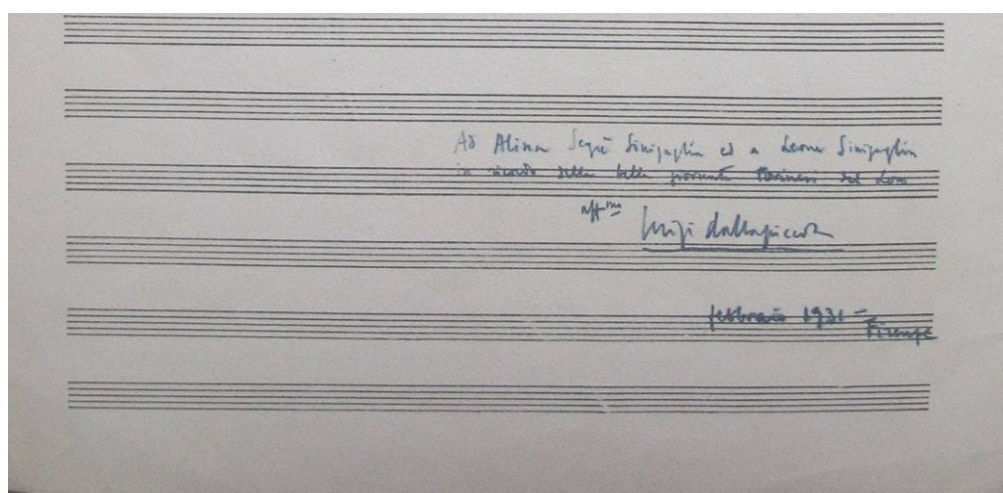 Ad Alina Segrè Sinigaglia ed a Leone Sinigaglia
in ricordo delle belle giornate torinesi del loro
aff.mo
Luigi Dallapiccola
febbraio 1931 –
Firenze